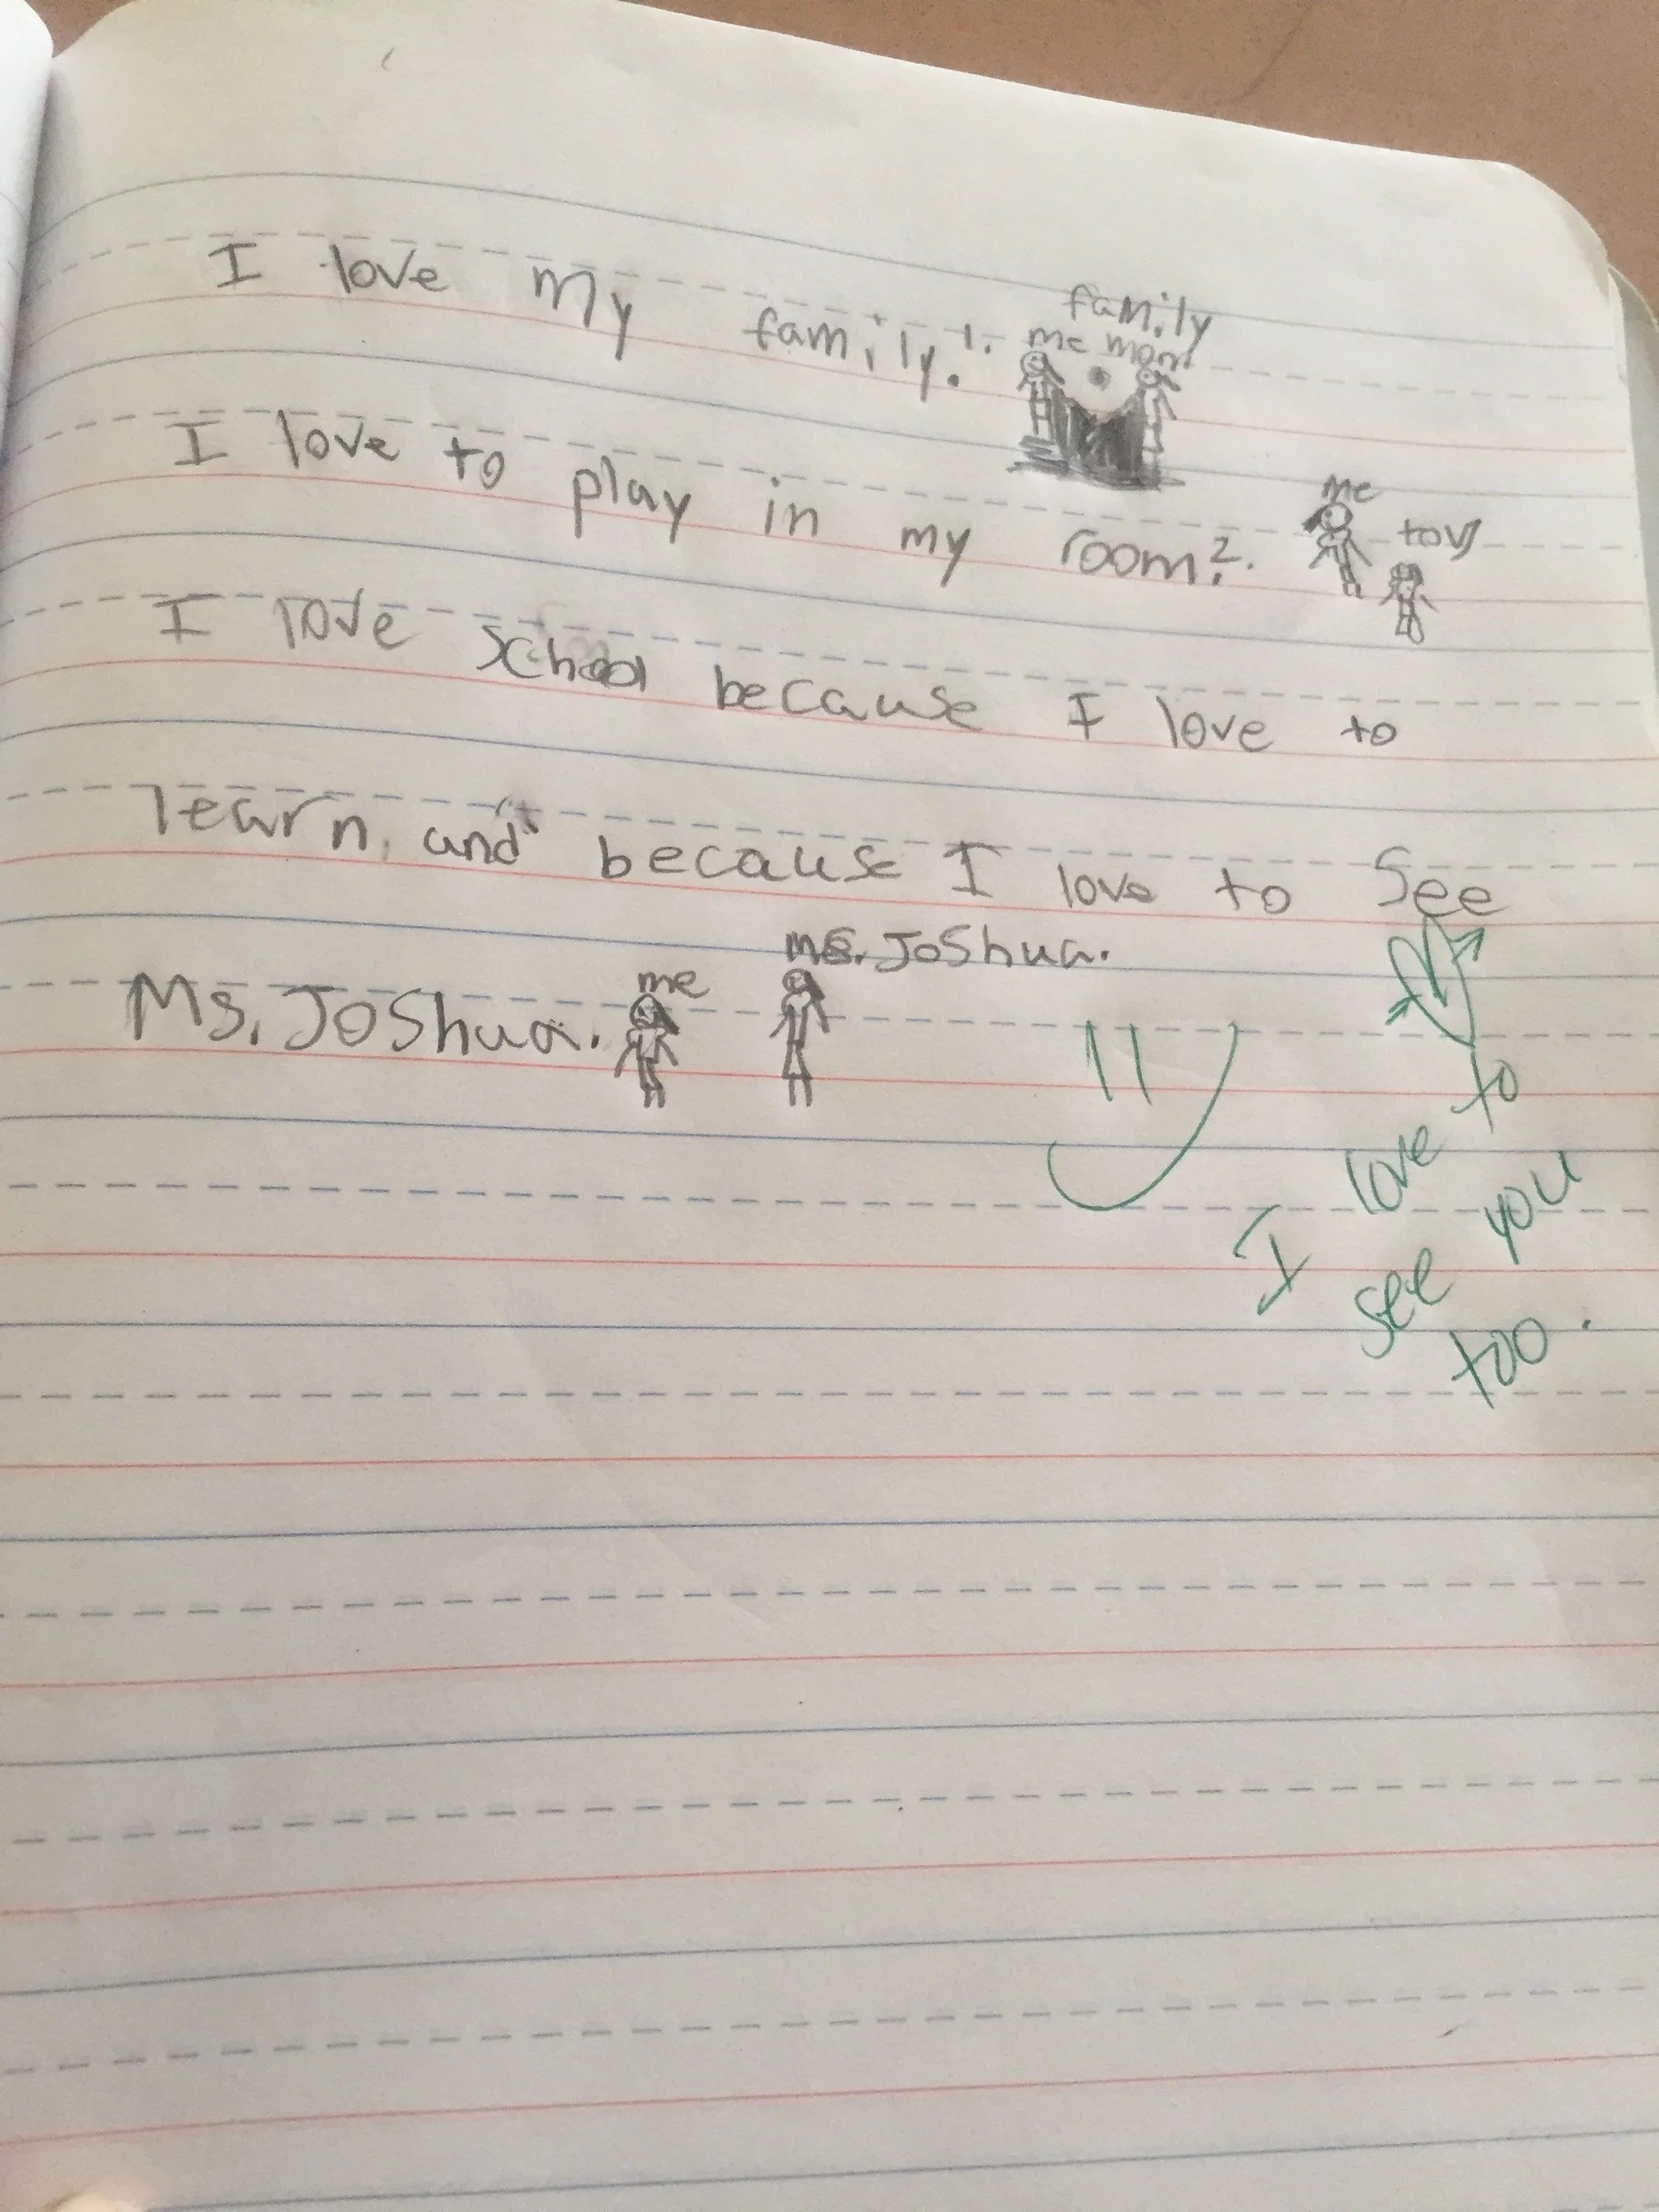 family
I love my family. 1. me mom
I love to play in my room. 2. me toy
I love school because I love to
learn, and because I love to see
ms. Joshua.
Ms. Joshua. me
I love to
see you
too.